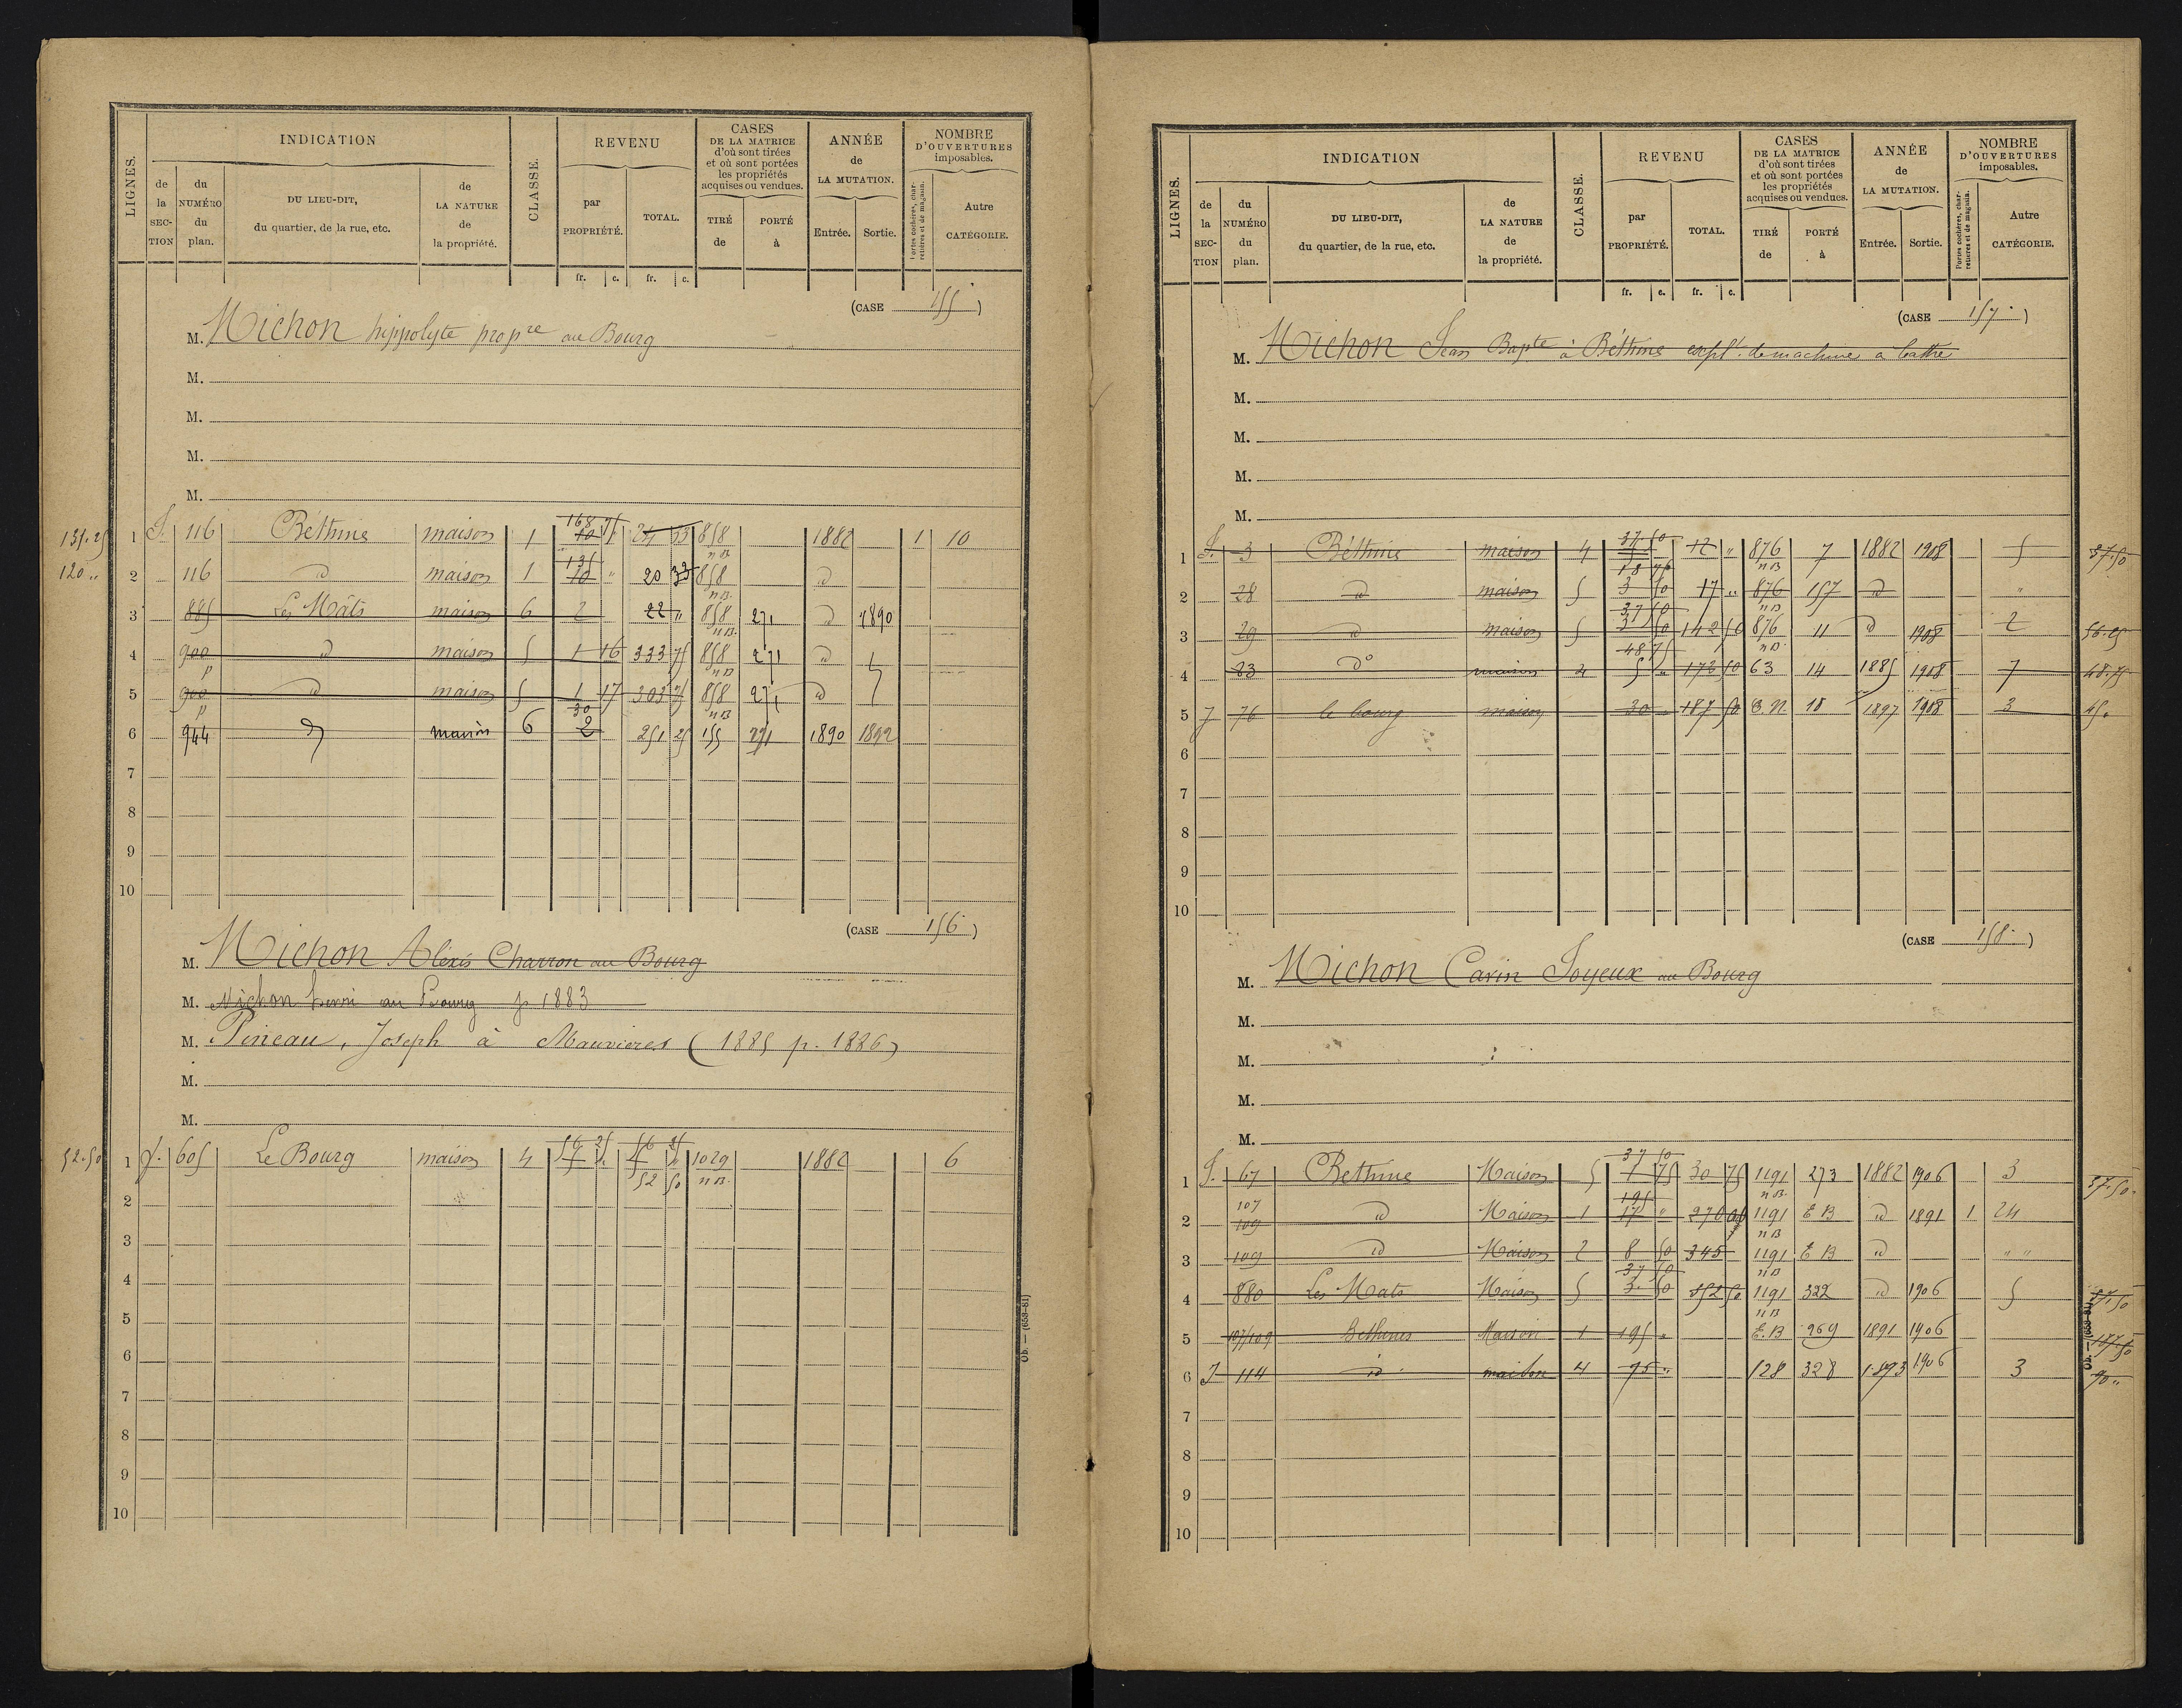 LIGNES.
INDICATION
CLASSE.
REVENU
CASES
DE LA MATRICE
d'où sont tirées
et où sont portées
les propriétés
acquises ou vendues.
ANNÉE
de
LA MUTATION.
NOMBRE
D'OUVERTURES
imposables.
de la SEC-TION
du NUMÉRO du plan.
DU LIEU-DIT,
du quartier, de la rue, etc.
de LA NATURE de la propriété.
par PROPRIÉTÉ.
TOTAL.
TIRÉ de
PORTÉ à
Entrée.
Sortie.
Portes cochères, char-retières et de magasin.
Autre CATÉGORIE.
fr. c. fr. c.
(CASE 155)
M. Michon hippolyte propre au Bourg
M.
M.
M.
M.
1 J. 116 Béthine maison 1 24 33 858 1882 1 10
2 116 id maison 1 20 33 858 id
3 885 Les Mâts maison 6 2 22 " 858 271 id 1890
4 900 p id maison 5 1 16 333 75 858 271 id
5 900 p id maison 5 1 17 303 75 858 271 id
6 944 maison 6 2 251 25 155 271 1890 1892
7
8
9
10
(CASE 156)
M. Michon Alexis Charron au Bourg
M. Michon henri au Bourg p 1883
M. Pineau, Joseph à Mauvieres (1885 p. 1886)
M.
M.
52.50 1 J. 605 Le Bourg maison 4 56 25 1029 1882 6
52 50 n B.
2
3
4
5
6
7
8
9
10
Ob. — (658-81)
LIGNES.
INDICATION
CLASSE.
REVENU
CASES
DE LA MATRICE
d'où sont tirées
et où sont portées
les propriétés
acquises ou vendues.
ANNÉE
de
LA MUTATION.
NOMBRE
D'OUVERTURES
imposables.
de la SEC-TION
du NUMÉRO du plan.
DU LIEU-DIT,
du quartier, de la rue, etc.
de LA NATURE de la propriété.
par PROPRIÉTÉ.
TOTAL.
TIRÉ de
PORTÉ à
Entrée.
Sortie.
Portes cochères, char-retières et de magasin.
Autre CATÉGORIE.
fr. c. fr. c.
(CASE 157)
M. Michon Jean Bapte à Béthine explt. de machine à battre
M.
M.
M.
M.
1 J. 3 Béthine maison 4 37 50 12 " 876 7 1882 1908 5 37.50
2 28 id maison 5 3 50 17 " 876 157 id "
3 29 id maison 5 3 50 142 50 876 11 id 1908 2 56.25
4 23 do maison 4 5 " 172 50 63 14 1885 1908 7 48.75
5 J 76 le bourg maison 30 187 50 C.N 18 1897 1908 3 45.
6
7
8
9
10
(CASE 158)
M. Michon Carin Joyeux au Bourg
M.
M.
M.
M.
1 J. 67 Bethine Maison 5 1 75 30 75 1191 273 1882 1906 3 37.50
2 107 109 id Maison 1 17 " 1191 E B id 1891 1 24
3 109 id Maison 2 8 50 345 1191 E B id " "
4 880 Les Mats Maison 5 3 50 352 50 1191 322 id 1906 5 37.50
5 107/109 Bethines Maison 1 195 " E.B 969 1891 1906
6 J 114 id maison 4 75 " 128 328 1893 1906 3 90 "
7
8
9
10